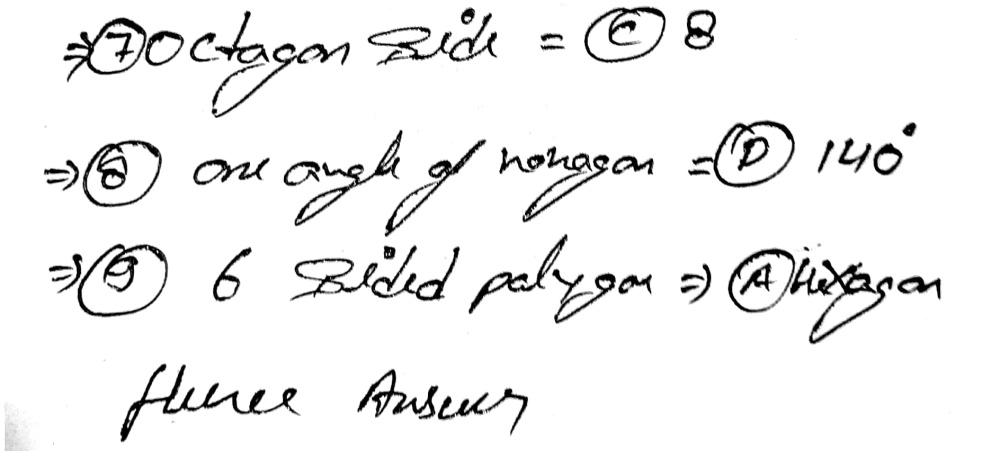 ⇒ ⑦ Octagon side = Ⓒ 8
⇒ ⑧ one angle of nonagon = Ⓓ 140°
⇒ ⑨ 6 sided polygon ⇒ Ⓐ Hexagon
Hence Answer